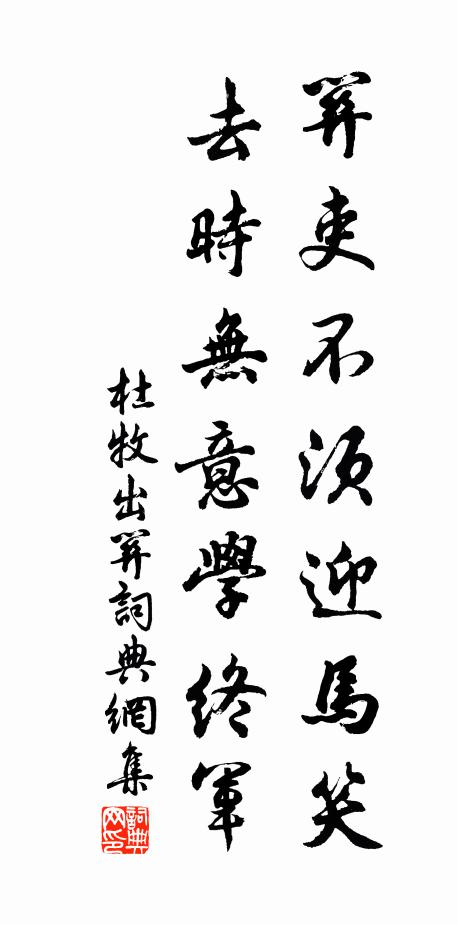 關吏不須迎馬笑
去時無意學終軍
杜牧出關詞典網集
詞典
网印